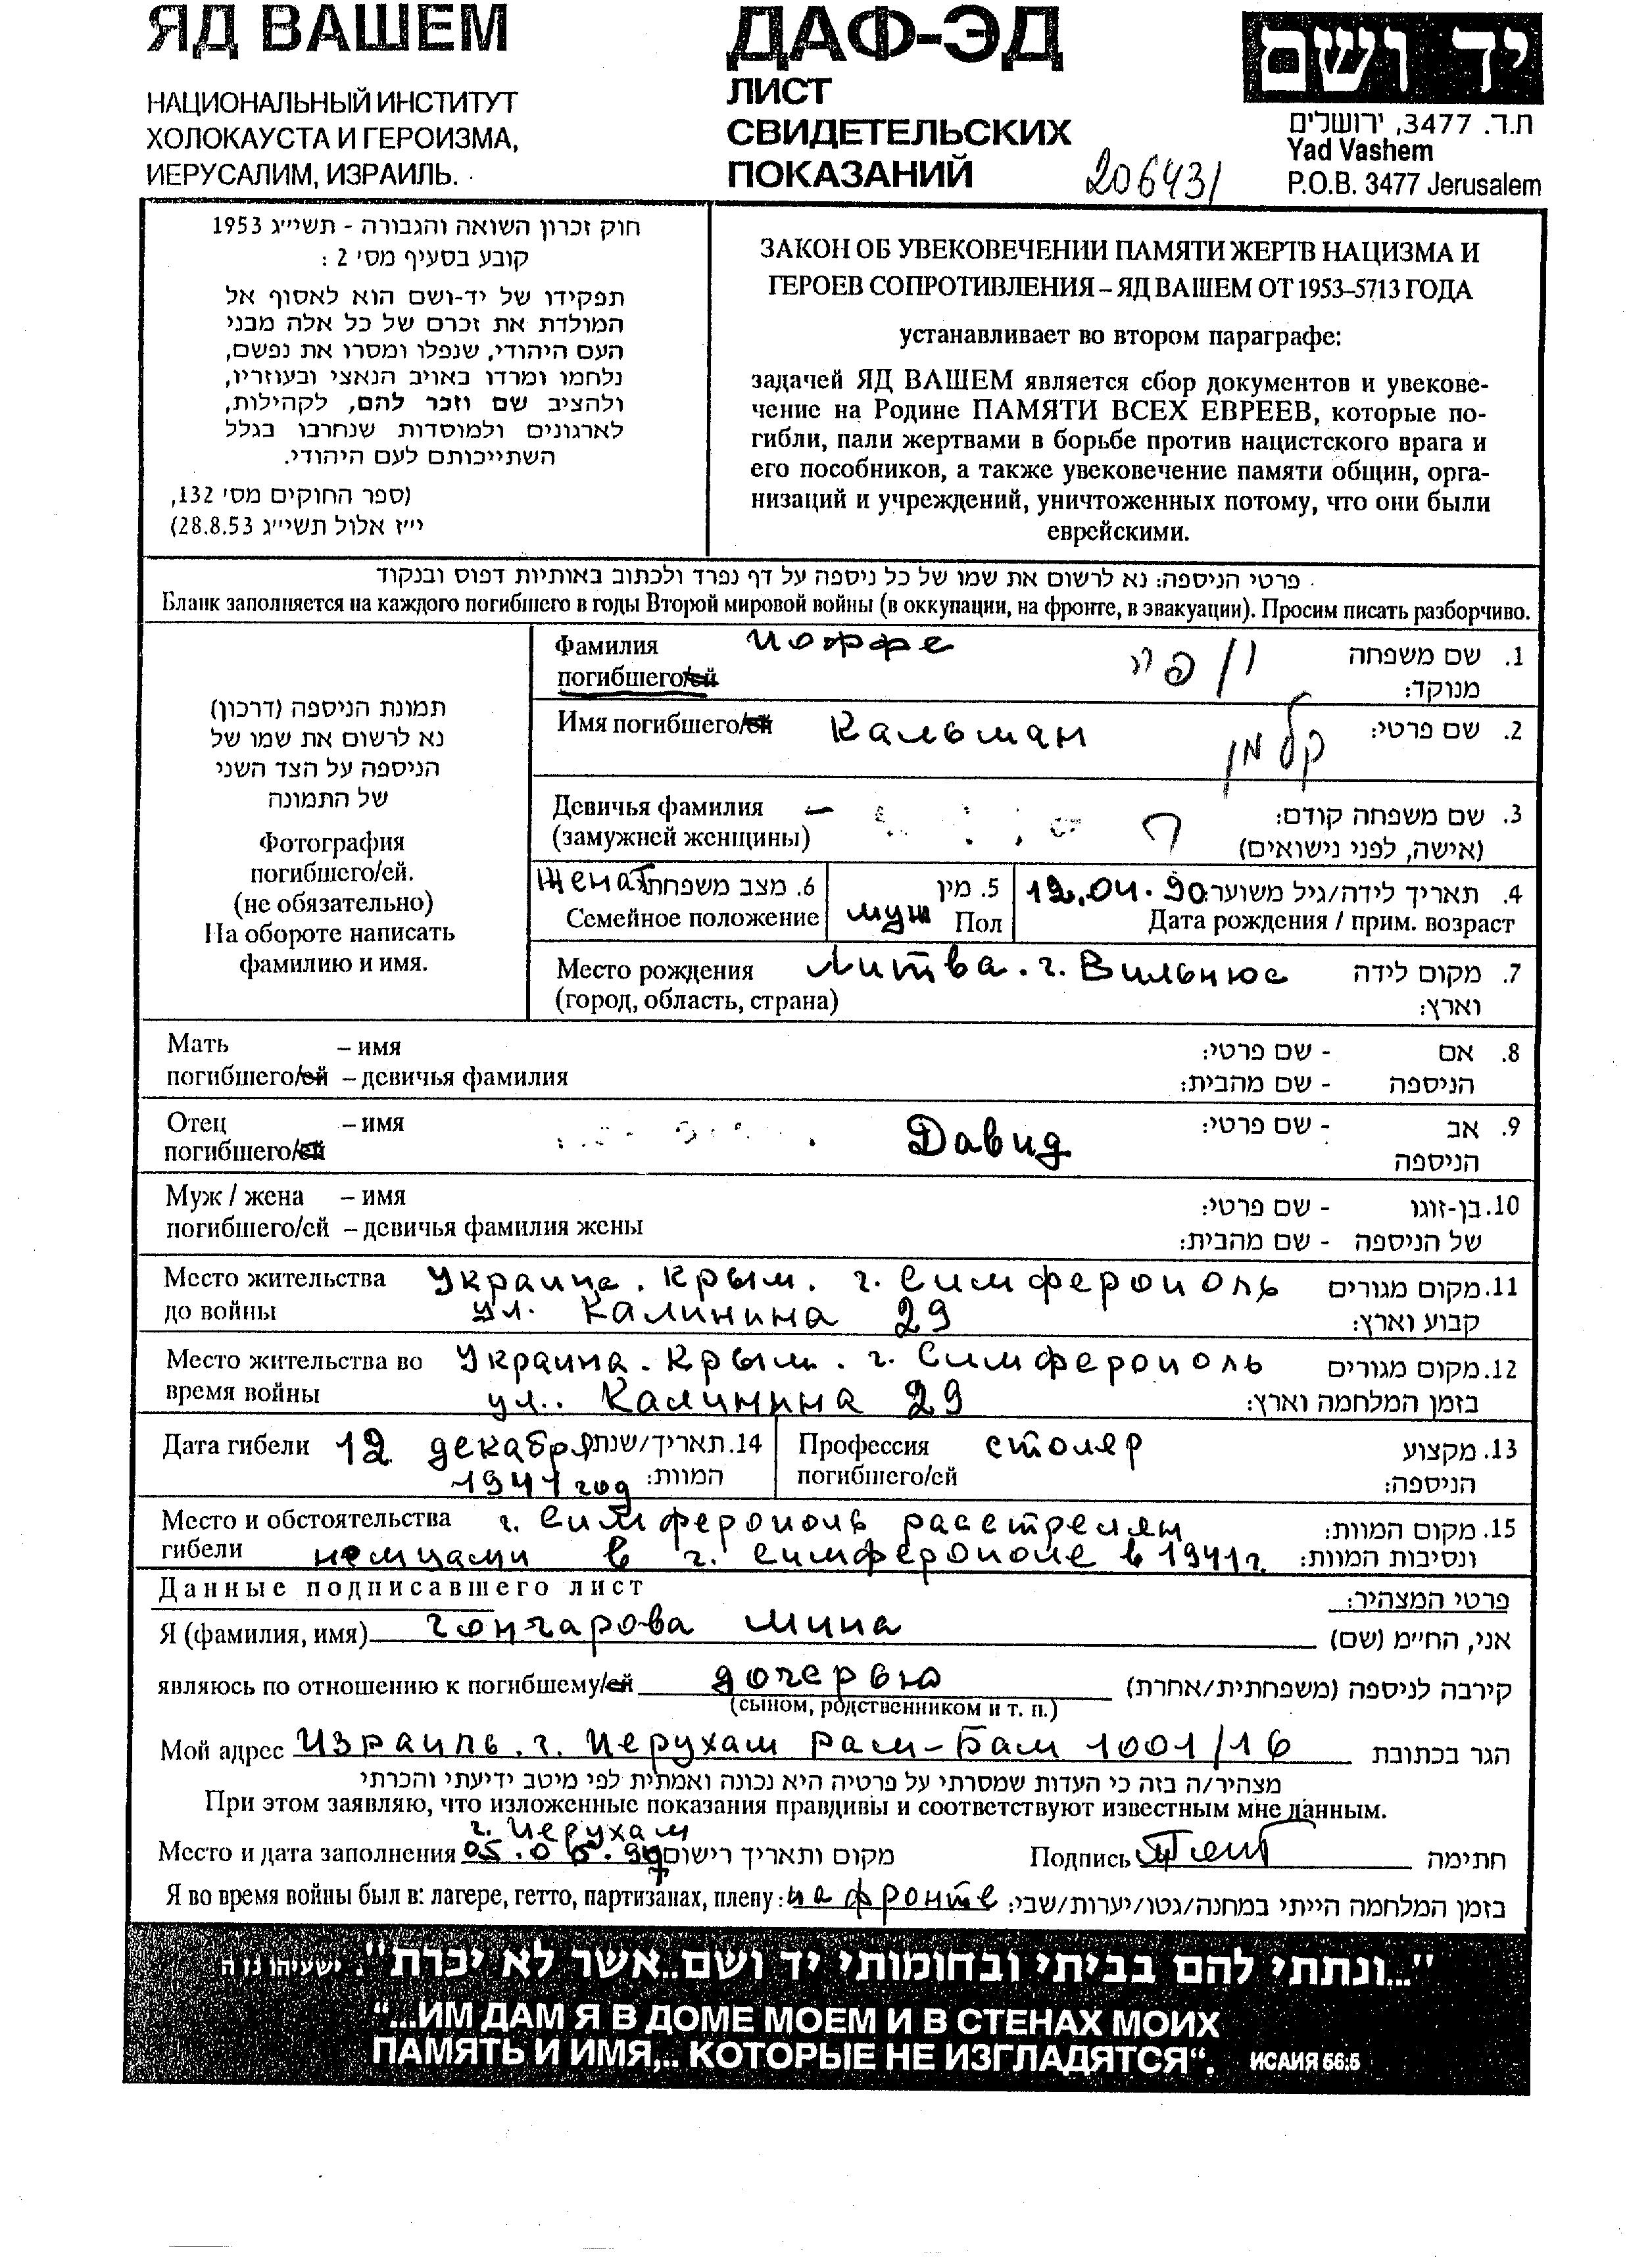 ЯД ВАШЕМ
НАЦИОНАЛЬНЫЙ ИНСТИТУТ
ХОЛОКАУСТА И ГЕРОИЗМА,
ИЕРУСАЛИМ, ИЗРАИЛЬ.
ДАФ-ЭД
ЛИСТ
СВИДЕТЕЛЬСКИХ
ПОКАЗАНИЙ
206431
יד ושם
ת.ד. 3477, ירושלים
Yad Vashem
P.O.B. 3477 Jerusalem
חוק זכרון השואה והגבורה - תשי״ג 1953
קובע בסעיף מס׳ 2 :
תפקידו של יד-ושם הוא לאסוף אל
המולדת את זכרם של כל אלה מבני
העם היהודי, שנפלו ומסרו את נפשם,
נלחמו ומרדו באויב הנאצי ובעוזריו,
ולהציב שם וזכר להם, לקהילות,
לארגונים ולמוסדות שנחרבו בגלל
השתייכותם לעם היהודי.
(ספר החוקים מס׳ 132,
י״ז אלול תשי״ג 28.8.53)
ЗАКОН ОБ УВЕКОВЕЧЕНИИ ПАМЯТИ ЖЕРТВ НАЦИЗМА И
ГЕРОЕВ СОПРОТИВЛЕНИЯ – ЯД ВАШЕМ ОТ 1953–5713 ГОДА
устанавливает во втором параграфе:
задачей ЯД ВАШЕМ является сбор документов и увекове-
чение на Родине ПАМЯТИ ВСЕХ ЕВРЕЕВ, которые по-
гибли, пали жертвами в борьбе против нацистского врага и
его пособников, а также увековечение памяти общин, орга-
низаций и учреждений, уничтоженных потому, что они были
еврейскими.
פרטי הניספה: נא לרשום את שמו של כל ניספה על דף נפרד ולכתוב באותיות דפוס ובנקוד
Бланк заполняется на каждого погибшего в годы Второй мировой войны (в оккупации, на фронте, в эвакуации). Просим писать разборчиво.
תמונת הניספה (דרכון)
נא לרשום את שמו של
הניספה על הצד השני
של התמונה
Фотография
погибшего/ей.
(не обязательно)
На обороте написать
фамилию и имя.
Фамилия Иоффе 1. שם משפחה
погибшего/ей מנוקד:
Имя погибшего/ей Кальман קלמן 2. שם פרטי:
Девичья фамилия – 3. שם משפחה קודם:
(замужней женщины) (אישה, לפני נישואים)
женат 6. מצב משפחתי 5. מין 12.04.90 4. תאריך לידה/גיל משוער:
Семейное положение муж Пол Дата рождения / прим. возраст
Место рождения Литва. г. Вильнюс 7. מקום לידה
(город, область, страна) וארץ:
Мать – имя 8. אם - שם פרטי:
погибшего/ей – девичья фамилия הניספה - שם מהבית:
Отец – имя Давид 9. אב - שם פרטי:
погибшего/ей הניספה
Муж / жена – имя 10. בן-זוגו - שם פרטי:
погибшего/ей – девичья фамилия жены של הניספה - שם מהבית:
Место жительства Украина. Крым. г. Симферополь 11. מקום מגורים
до войны ул. Калинина 29 קבוע וארץ:
Место жительства во Украина. Крым. г. Симферополь 12. מקום מגורים
время войны ул. Калинина 29 בזמן המלחמה וארץ:
Дата гибели 12 декабря 14. תאריך/שנת Профессия столяр 13. מקצוע
1941 год המוות: погибшего/ей הניספה:
Место и обстоятельства г. Симферополь расстрелян 15. מקום המוות:
гибели немцами в г. Симферополе в 1941г. ונסיבות המוות:
Данные подписавшего лист פרטי המצהיר:
Я (фамилия, имя) Гончарова Мина אני, החי״מ (שם)
являюсь по отношению к погибшему/ей дочерью קירבה לניספה (משפחתית/אחרת)
(сыном, родственником и т. п.)
Мой адрес Израиль. г. Иерухам Рам-Бам 1001/16 הגר בכתובת
מצהיר/ה בזה כי העדות שמסרתי על פרטיה היא נכונה ואמתית לפי מיטב ידיעתי והכרתי
При этом заявляю, что изложенные показания правдивы и соответствуют известным мне данным.
г. Иерухам
Место и дата заполнения מקום ותאריך רישום Подпись חתימה
Я во время войны был в: лагере, гетто, партизанах, плену: на фронте בזמן המלחמה הייתי במחנה/גטו/יערות/שבי:
"...ונתתי להם בביתי ובחומותי יד ושם..אשר לא יכרת". ישעיהו נו ה
"...ИМ ДАМ Я В ДОМЕ МОЕМ И В СТЕНАХ МОИХ
ПАМЯТЬ И ИМЯ,.. КОТОРЫЕ НЕ ИЗГЛАДЯТСЯ". ИСАИЯ 56:5